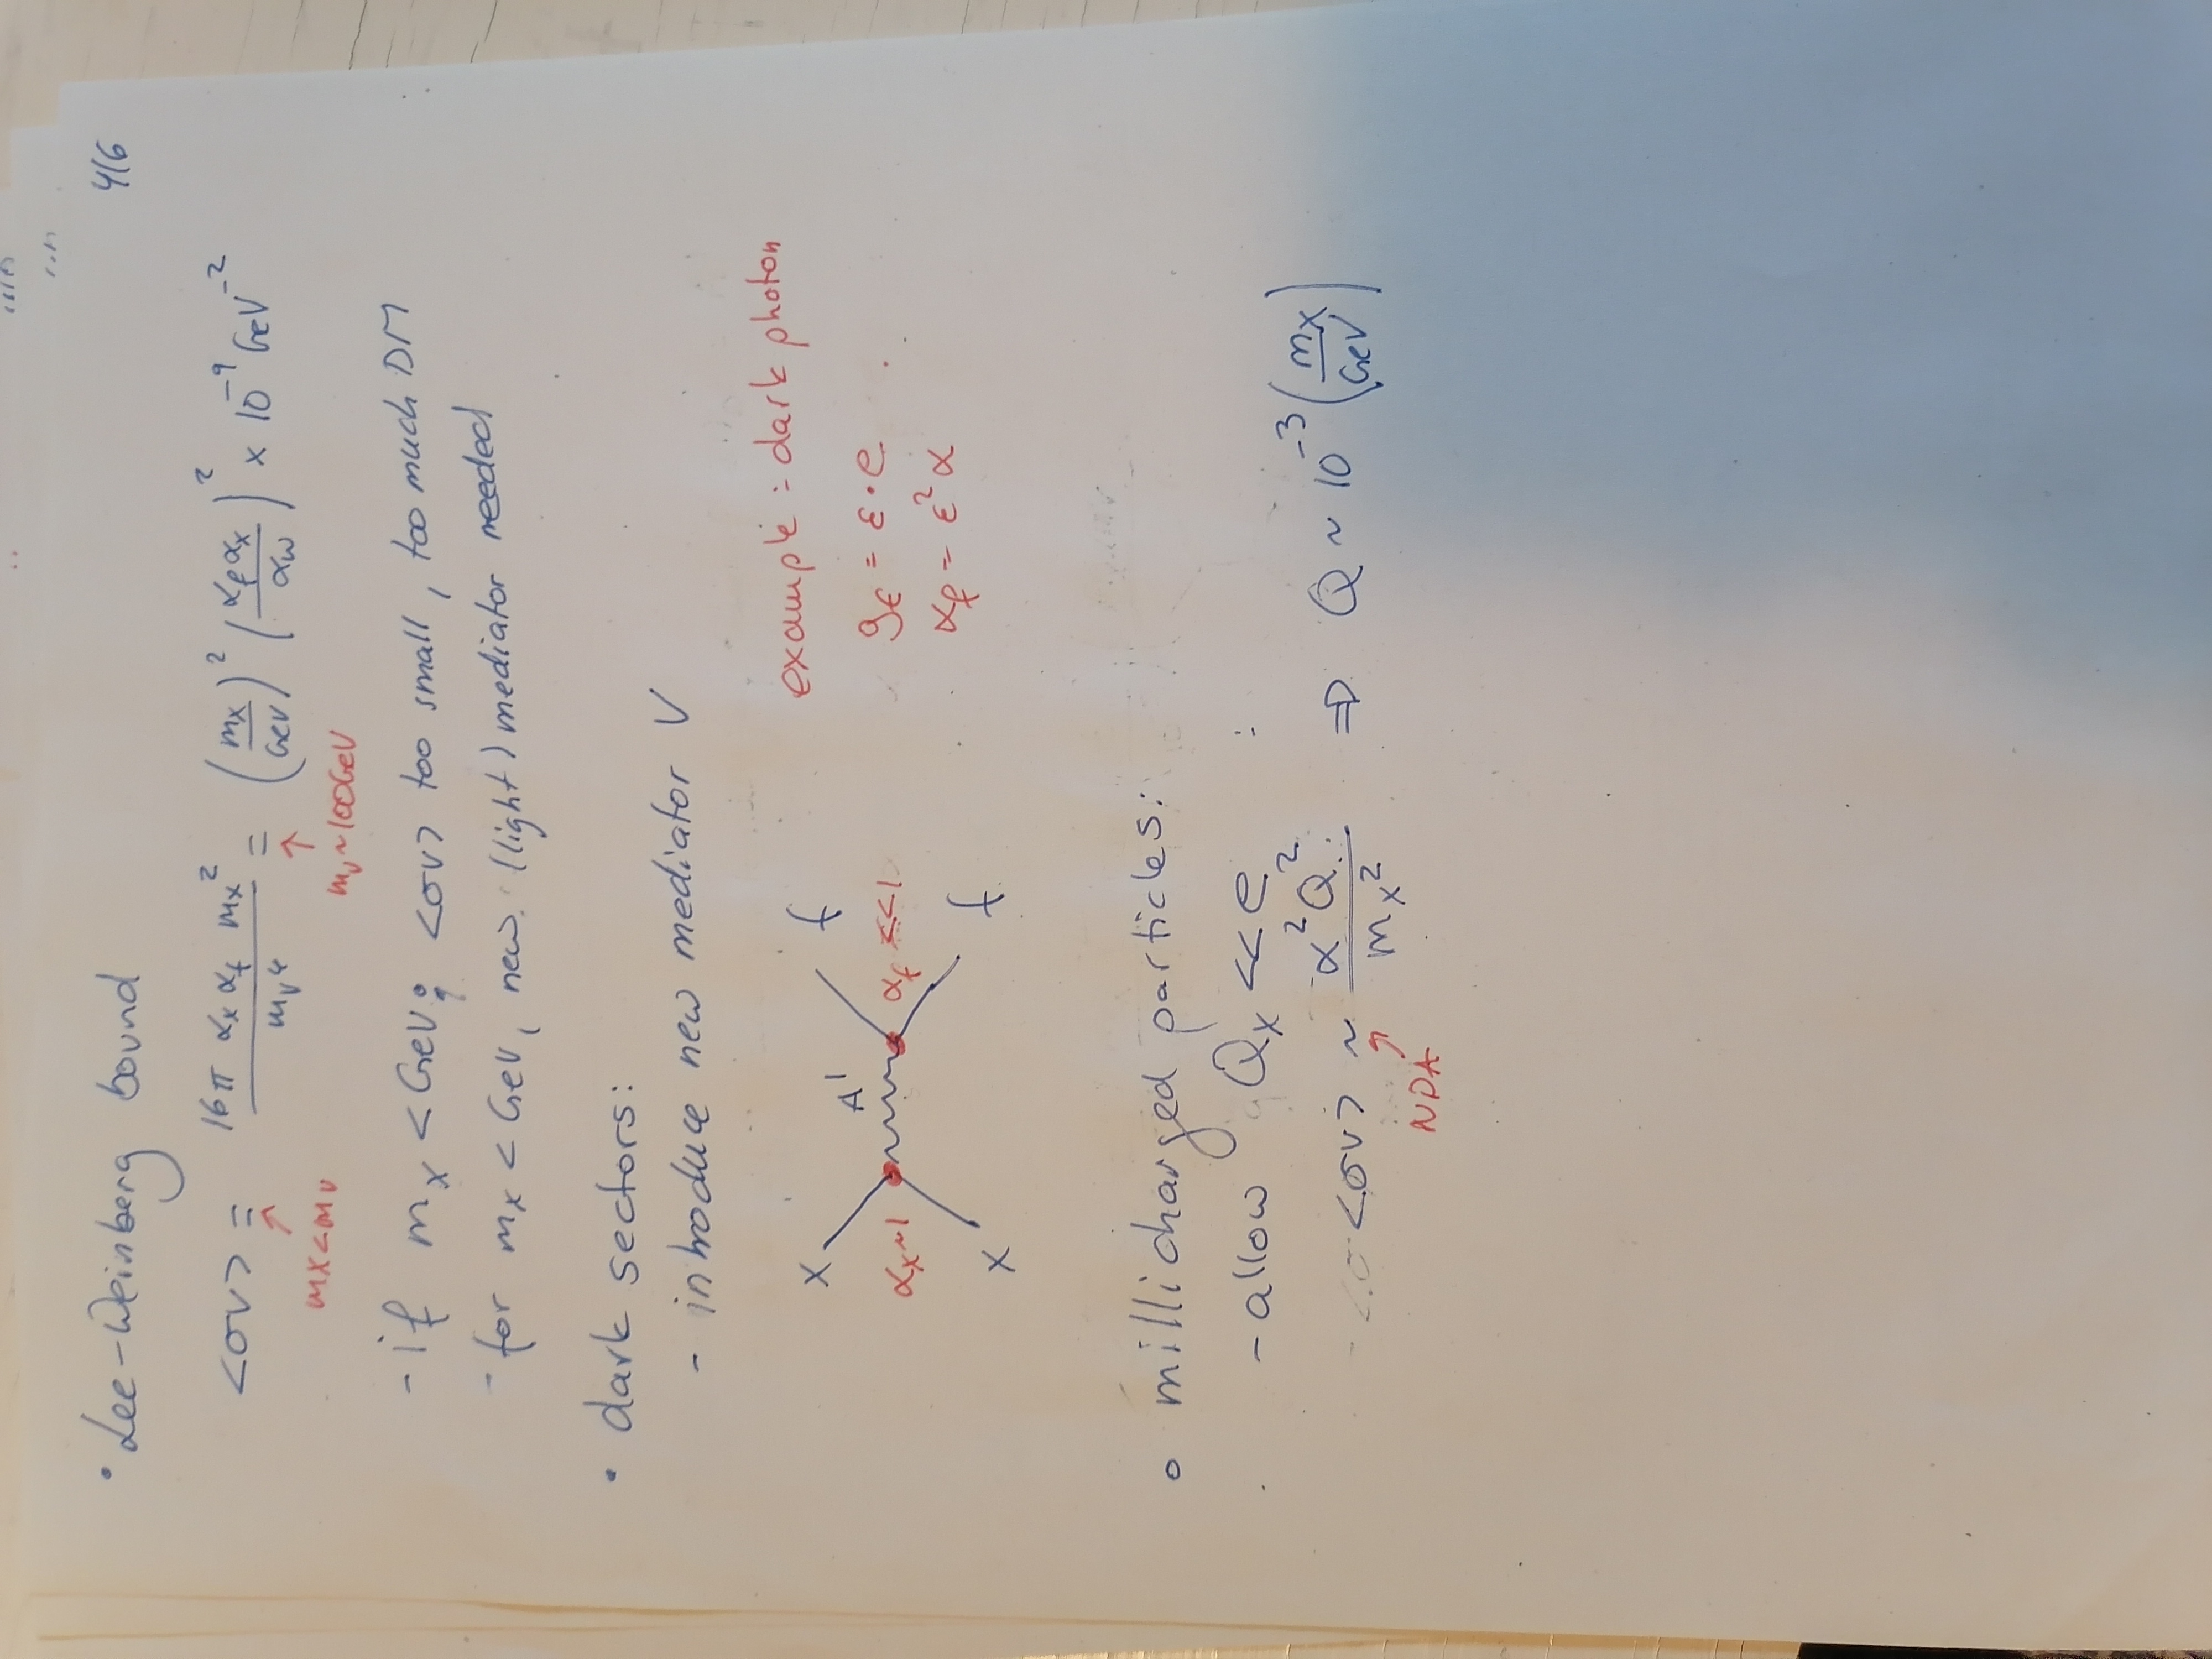 4/6
• Lee-Weinberg bound
<σv> = 16π αx αf mx² / mv⁴ = (mx/GeV)² (αf αx/αw)² × 10⁻⁹ GeV⁻²
↑ mx<mv
↑ mv~100GeV
- if mx < GeV: <σv> too small, too much DM
- for mx < GeV, new (light) mediator needed
• dark sectors:
- introduce new mediator V
example: dark photon
X A' f
αx~1 αf <<1
gf = ε·e
X f
αf = ε²α
• millicharged particles:
- allow Qx << e :
<σv> ~ α²Q²/mx² ⇒ Q ~ 10⁻³ (mx/GeV)
↑ NDA